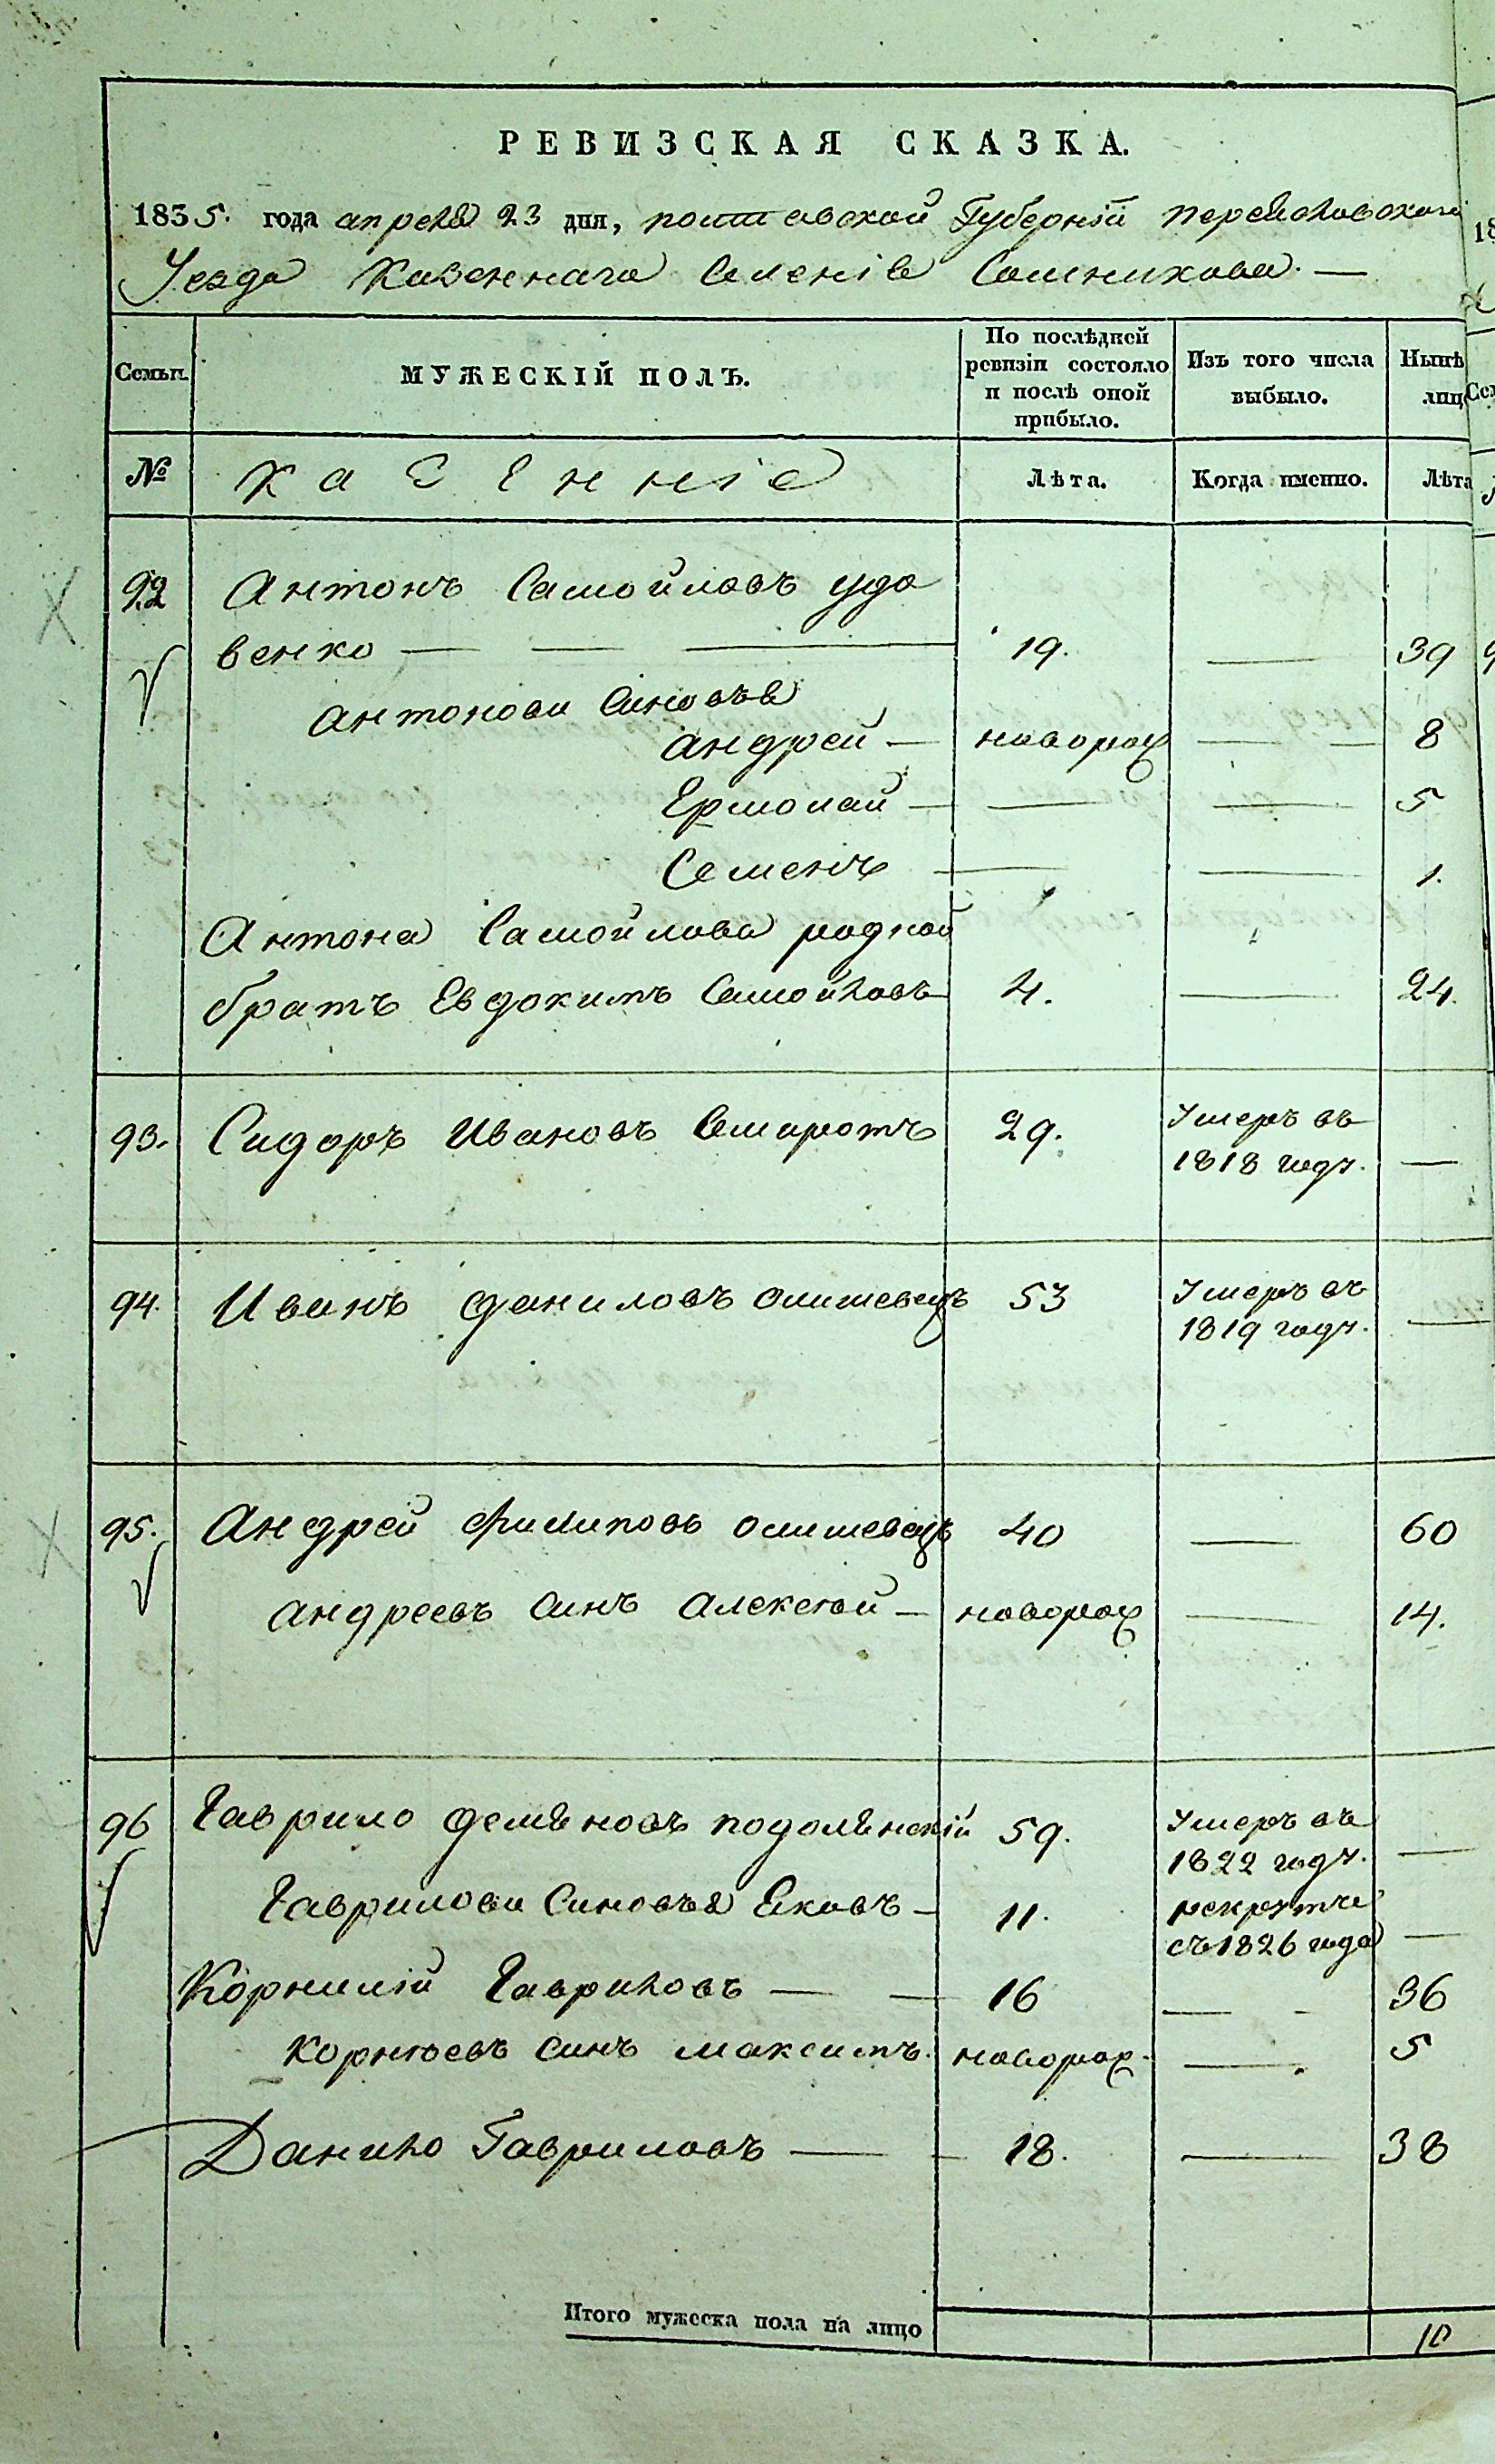 РЕВИЗСКАЯ СКАЗКА.
1835. года апреля 23 дня, полтавской Губерніи переяславскаго
Уезда Казеннаго Селенія Сошникова. —
Семьи. МУЖЕСКІЙ ПОЛЪ. По послѣдней ревизіи состояло и послѣ оной прибыло. Изъ того числа выбыло. Нынѣ лиц
№ Казенніе Лѣта. Когда именно. Лѣта
92 Антонъ Самойловъ удо
венко — — — 19. — 39
антонови Синовья
андрей — новорож — — 8
Ермолай — — — 5
Семенъ — — 1.
Антона Самойлова родной
братъ Евдокимъ Самойловъ 4. — 24.
93. Сидоръ Ивановъ 29. Умеръ въ
1818 году. —
94. Иванъ даниловъ олишевецъ 53 Умеръ въ
1819 году. —
95. Андрей филиповъ олишевецъ 40 — 60
андреевъ Синъ Алексѣй — новорож — 14.
96 Гаврило демяновъ подолянскій 59. Умеръ въ
1822 году. —
Гаврилови Синовья Яковъ — 11. рекруте
съ 1826 года —
Корнилій Гавриловъ — — 16 — - 36
Корнѣевъ Синъ максимъ. новорож. — 5
Данило Гавриловъ — — 18. — 38
Итого мужеска пола на лицо 10